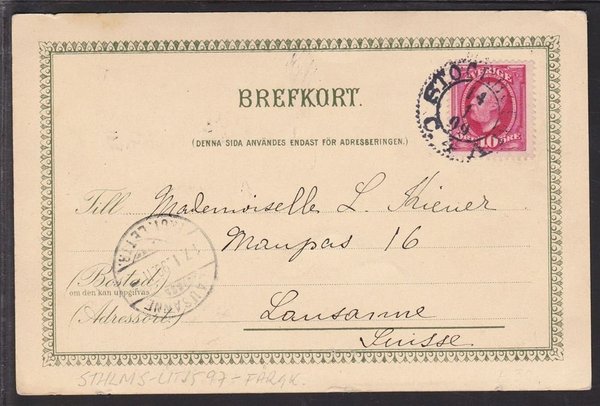 BREFKORT.
(DENNA SIDA ANVÄNDES ENDAST FÖR ADRESSERINGEN.)
SVERIGE
10 ÖRE
14
1
99
Till Mademoiselle L. Kiener
Maupas 16
(Bostad)
om den kan uppgifvas
Lausanne
(Adressort)
Suisse.
LAUSANNE
LETTR.
STHLMS-UTST 97-FÄRGK.